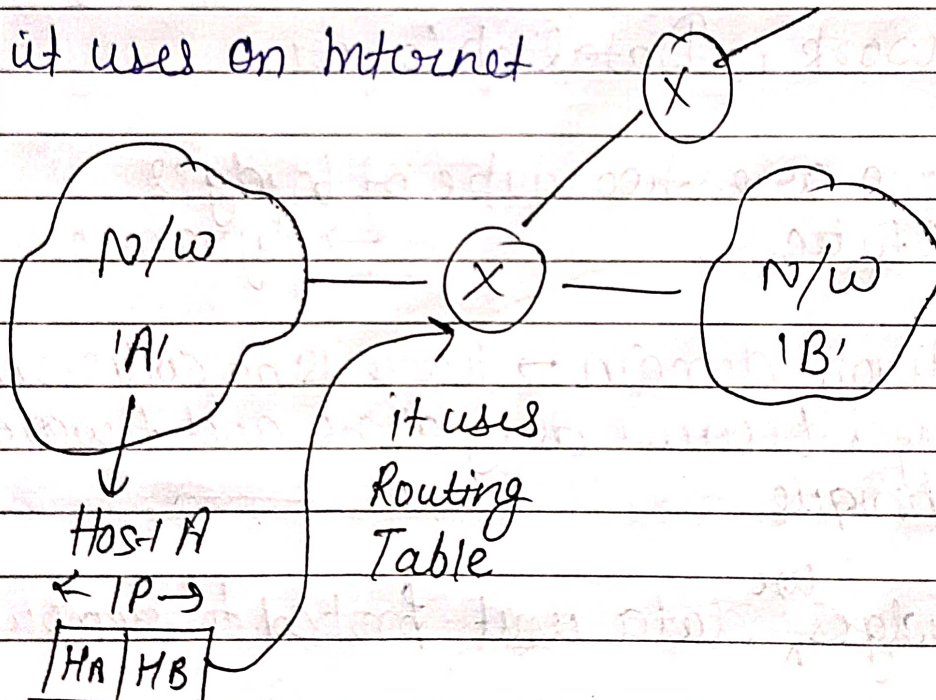 it uses on Internet
X
N/W
'A'
X
N/W
'B'
it uses
Routing
Table
Host A
← IP →
HA HB